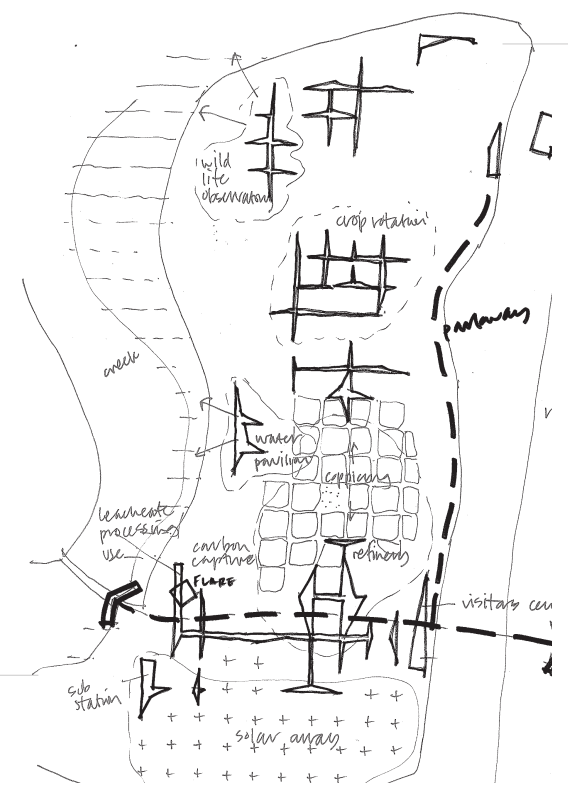 wild
life
observation
crop rotation
pathway
creek
water
pavilion
coppicing
leacheate
processing
use
carbon
capture
FLARE
refinery
visitors cen
sub
station
solar array